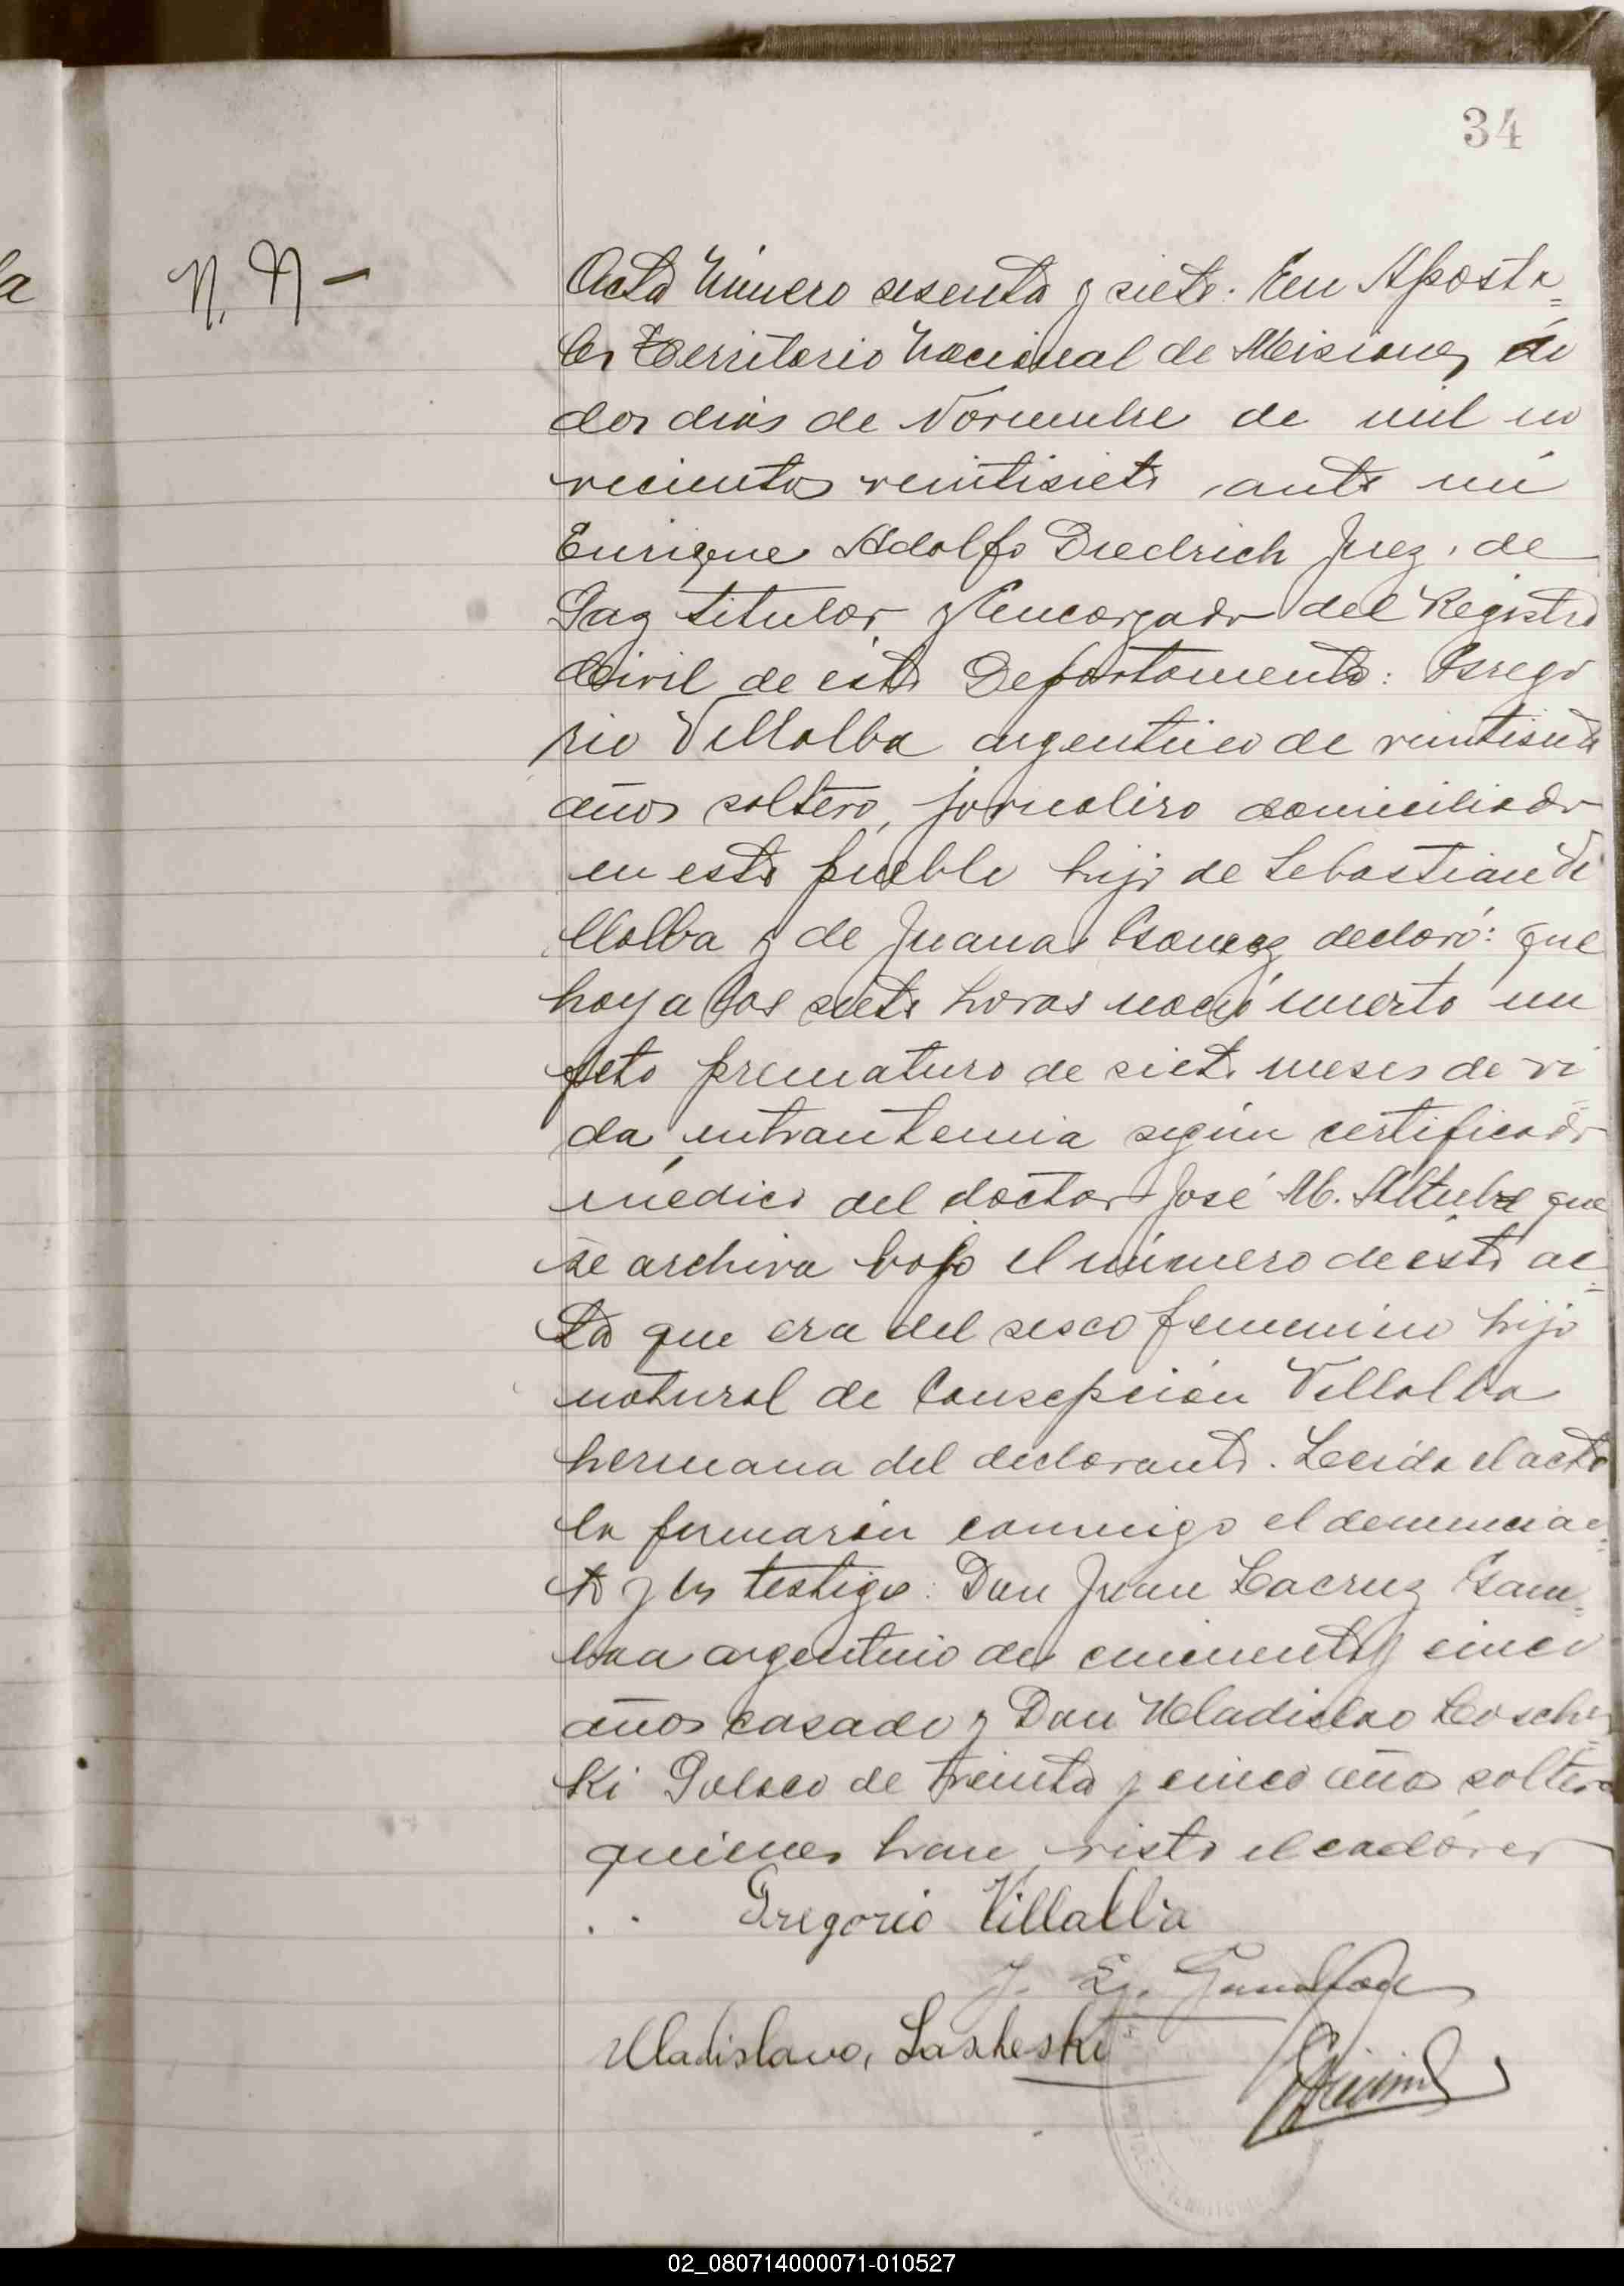 34
la
N. N –
Acta Número sesenta y siete. En Aposto=
les Territorio Nacional de Misiones, á
dos dias de Noviembre de mil no
vecientos veintisiete, ante mí
Enrique Adolfo Diedrich Juez de
Paz titular y Encargado del Registro
Civil de este Departamento: Grego
rio Villalba argentino de veintisiete
años soltero, jornalero domiciliado
en este pueblo hijo de Sebastian Vi
llalba y de Juana Gomez declaró: que
hoy a las siete horas nació muerto un
feto prematuro de siete meses de vi
da intrauterina según certificado
médico del doctor José M. Altube que
se archiva bajo el número de esta ac=
ta que era del sesco femenino hijo
natural de Consepción Villalba
hermana del declarante. Leida el acta
la firmarón conmigo el denuncian=
te y los testigo: Don Juan Lacruz Gam=
boa argentino de cincuenta y cinco
años casado y Don Uladislao Losches=
ki Polaco de treinta y cinco años soltero
quienes han visto el cadáver
Gregorio Villalba
Uladislavo, Lascheski
02_080714000071-010527